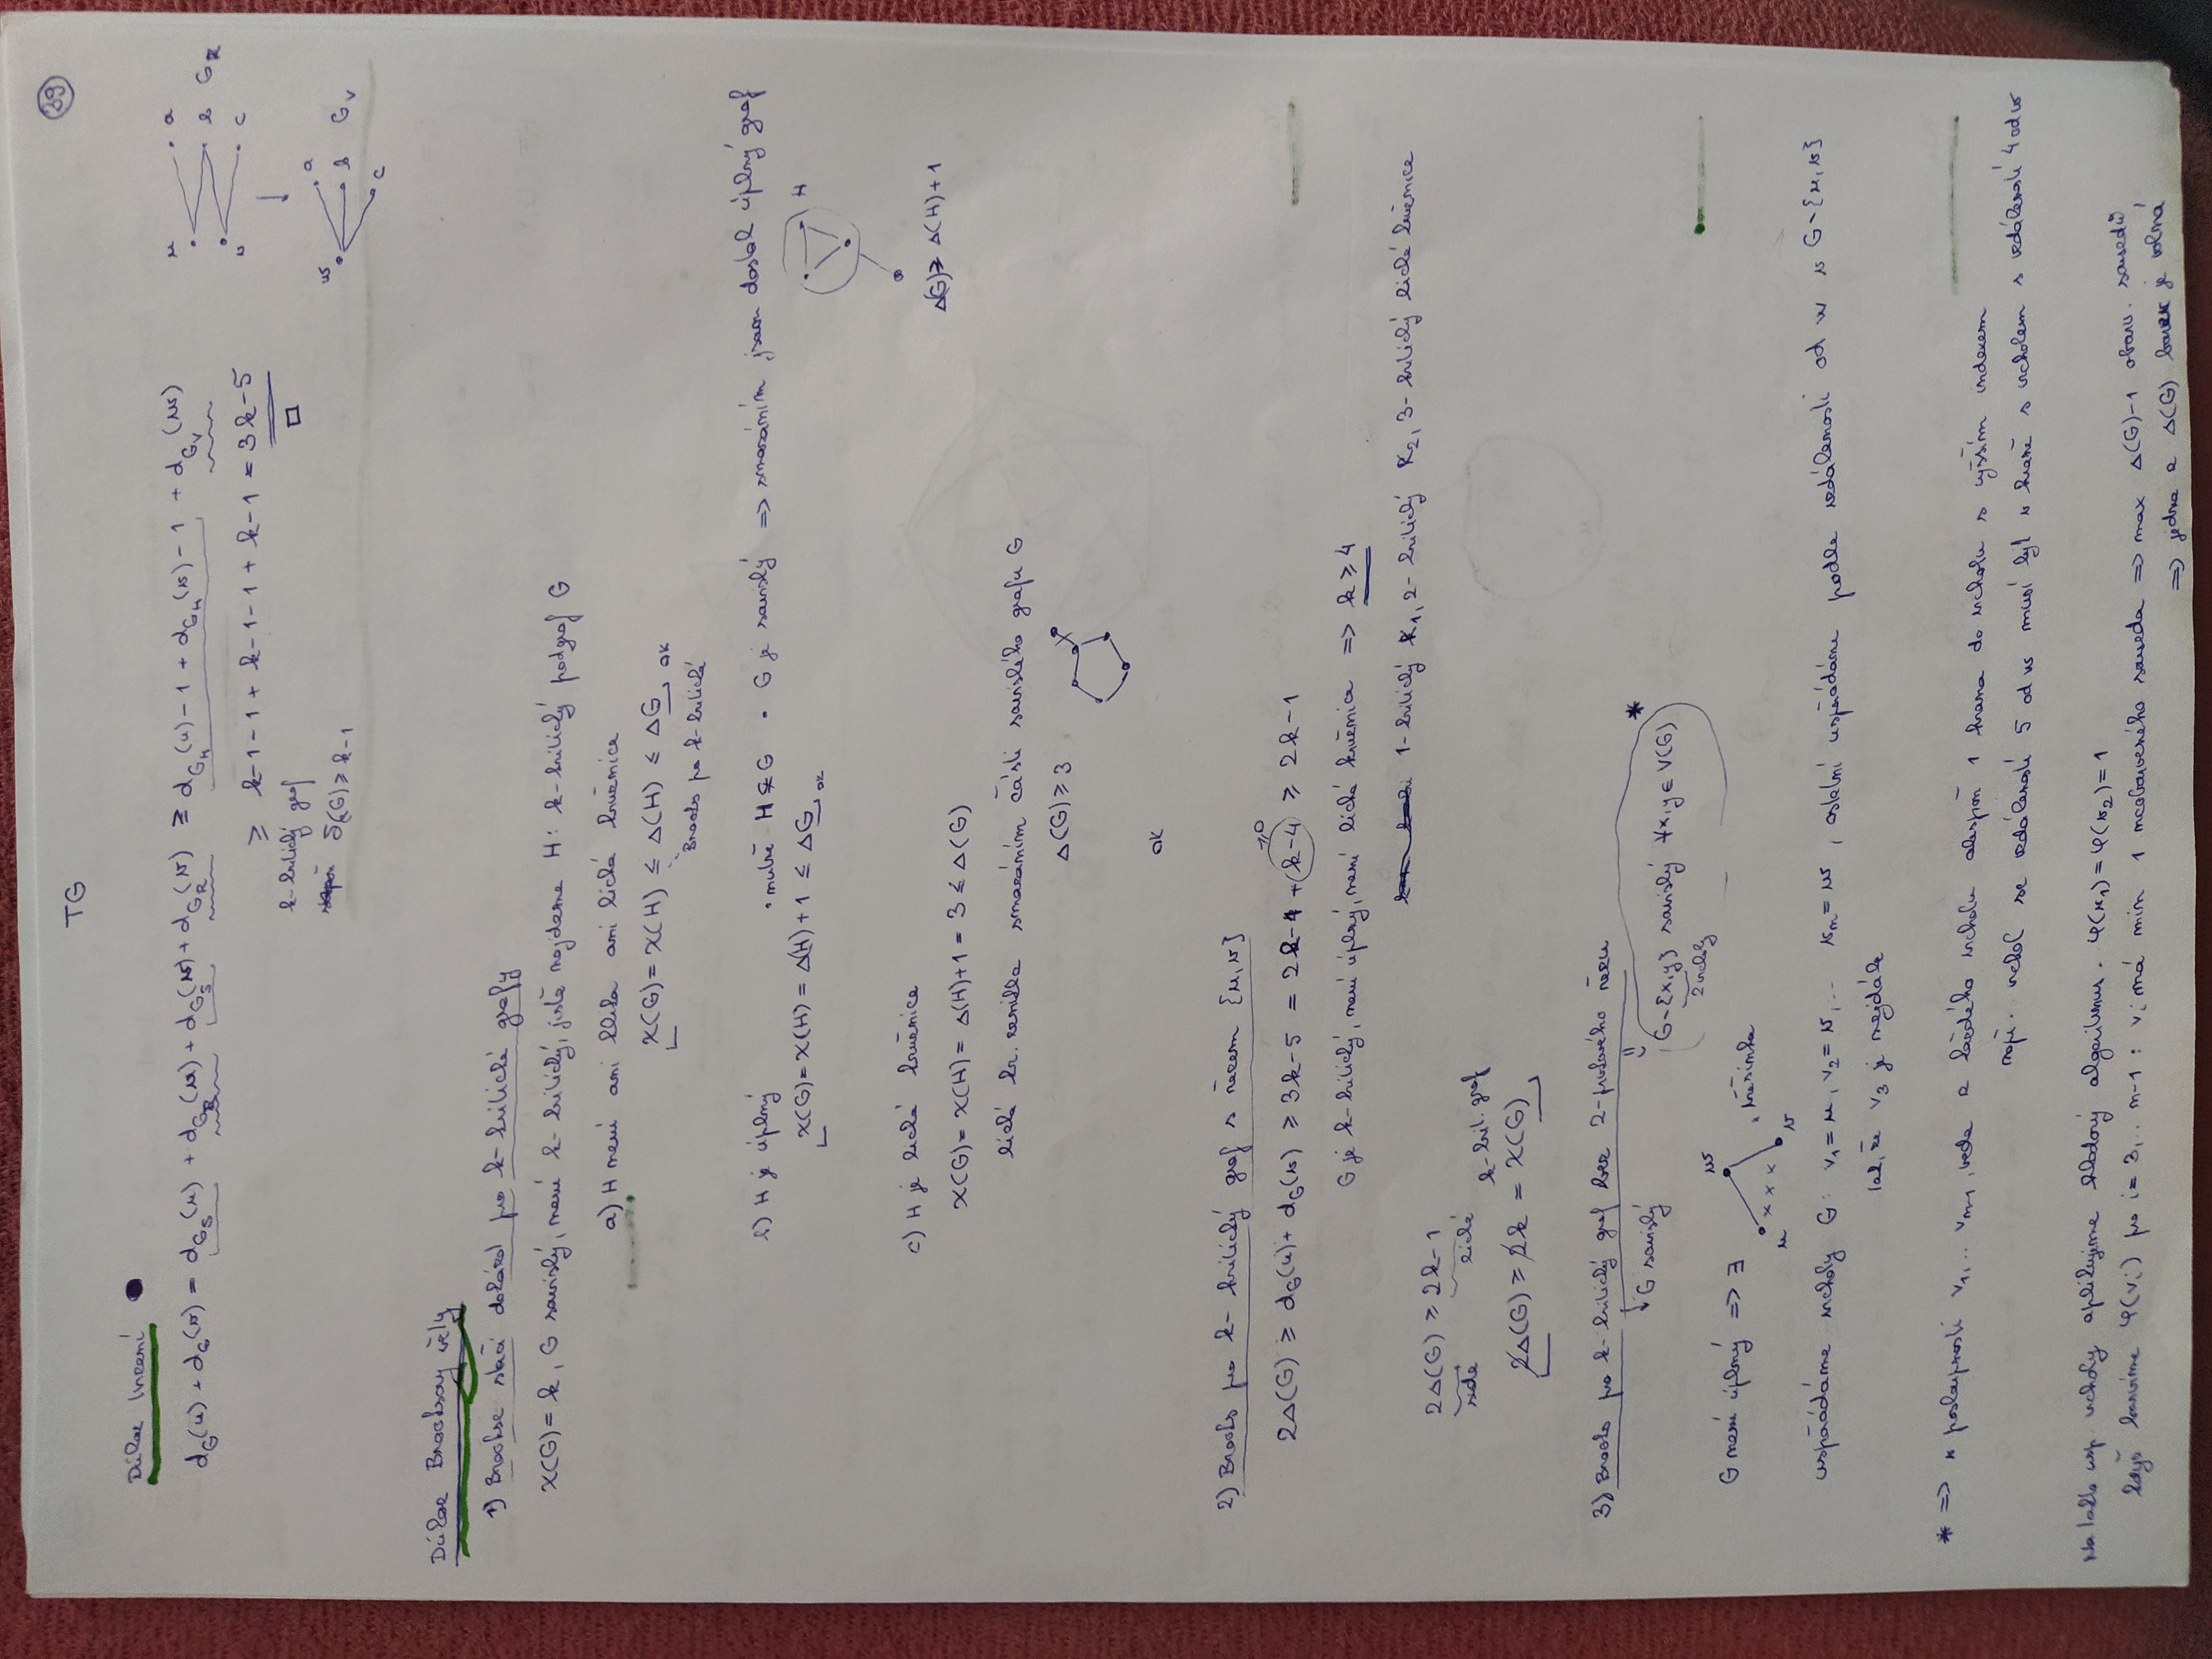 TG
39
Důkaz tvrzení
d_G(u) + d_G(v) = d_{G_S}(u) + d_{G_R}(u) + d_{G_S}(v) + d_{G_R}(v) ≥ d_{G_H}(u) - 1 + d_{G_H}(v) - 1 + d_{G_V}(w)
≥ k-1-1 + k-1-1 + k-1 = 3k-5
k-kritický graf
δ(G) ≥ k-1
u a
v b G_R
c
w a
b G_V
c
Důkaz Brooksovy věty
1) Brookse stačí dokázat pro k-kritické grafy
χ(G) = k, G souvislý, není k-kritický, jistě najdeme H: k-kritický podgraf G
a) H není ani klika ani lichá kružnice
χ(G) = χ(H) ≤ Δ(H) ≤ ΔG ok
Brooks pro k-kritické
b) H je úplný • nutně H ⊊ G • G je souvislý => smazáním jsem dostal úplný graf
χ(G) = χ(H) = Δ(H) + 1 ≤ ΔG ok
H
Δ(G) ≥ Δ(H) + 1
c) H je lichá kružnice
χ(G) = χ(H) = Δ(H) + 1 = 3 ≤ Δ(G)
lichá kr. vznikla smazáním části souvislého grafu G
Δ(G) ≥ 3
ok
2) Brooks pro k-kritický graf s řezem {u, v}
2Δ(G) ≥ d_G(u) + d_G(v) ≥ 3k-5 = 2k-1 + (k-4) ≥ 2k-1
≥0
G je k-kritický, není úplný, není lichá kružnice => k ≥ 4
1-kritický K1, 2-kritický K2, 3-kritický liché kružnice
2Δ(G) ≥ 2k-1
sudé liché k-krit. graf
2Δ(G) ≥ 2k = χ(G)
3) Brooks pro k-kritický graf bez 2-prvkového řezu
G souvislý
G-{x,y} souvislý ∀x,y ∈ V(G) *
2 vrcholy
G není úplný => ∃
w
u x x x v
, třešinka
uspořádáme vrcholy G: v1 = u, v2 = v, ... vn = w, ostatní uspořádáme podle vzdálenosti od w v G-{u,v}
tak, že v3 je nejdále
* => v posloupnosti v1, .. vn-1 vede z každého vrcholu alespoň 1 hrana do vrcholu s vyšším indexem
např. vrchol ve vzdálenosti 5 od w musí být v hraně s vrcholem s vzdáleností 4 od w
Na takto usp. vrcholy aplikujeme hladový algoritmus. φ(v1) = φ(v2) = 1
když barvíme φ(vi) pro i = 3, .. n-1: vi má min 1 neobarveného souseda => max Δ(G)-1 obarv. sousedů
=> jedna z Δ(G) barev je volná